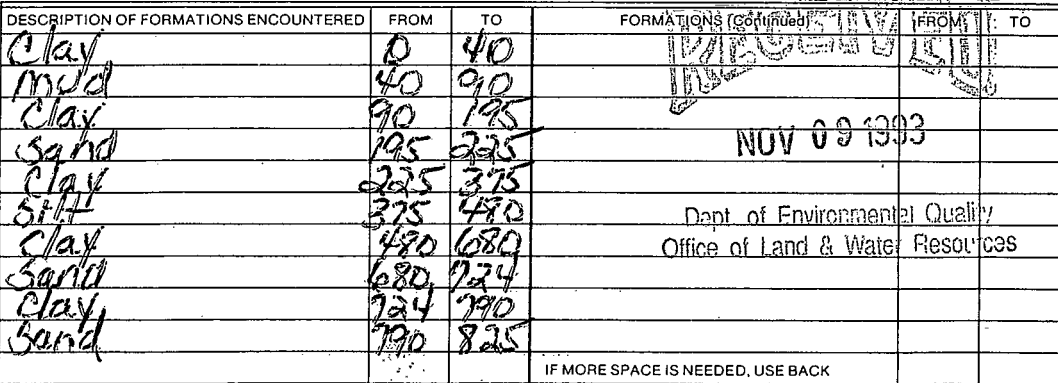 DESCRIPTION OF FORMATIONS ENCOUNTERED FROM TO FORMATIONS (Continued) FROM TO
Clay 0 40
Mud 40 90
Clay 90 195
Sand 195 225
Clay 225 375
Silt 375 480
Clay 480 680
Sand 680 724
Clay 724 790
Sand 790 825
RECEIVED
NOV 09 1993
Dept. of Environmental Quality
Office of Land & Water Resources
IF MORE SPACE IS NEEDED, USE BACK